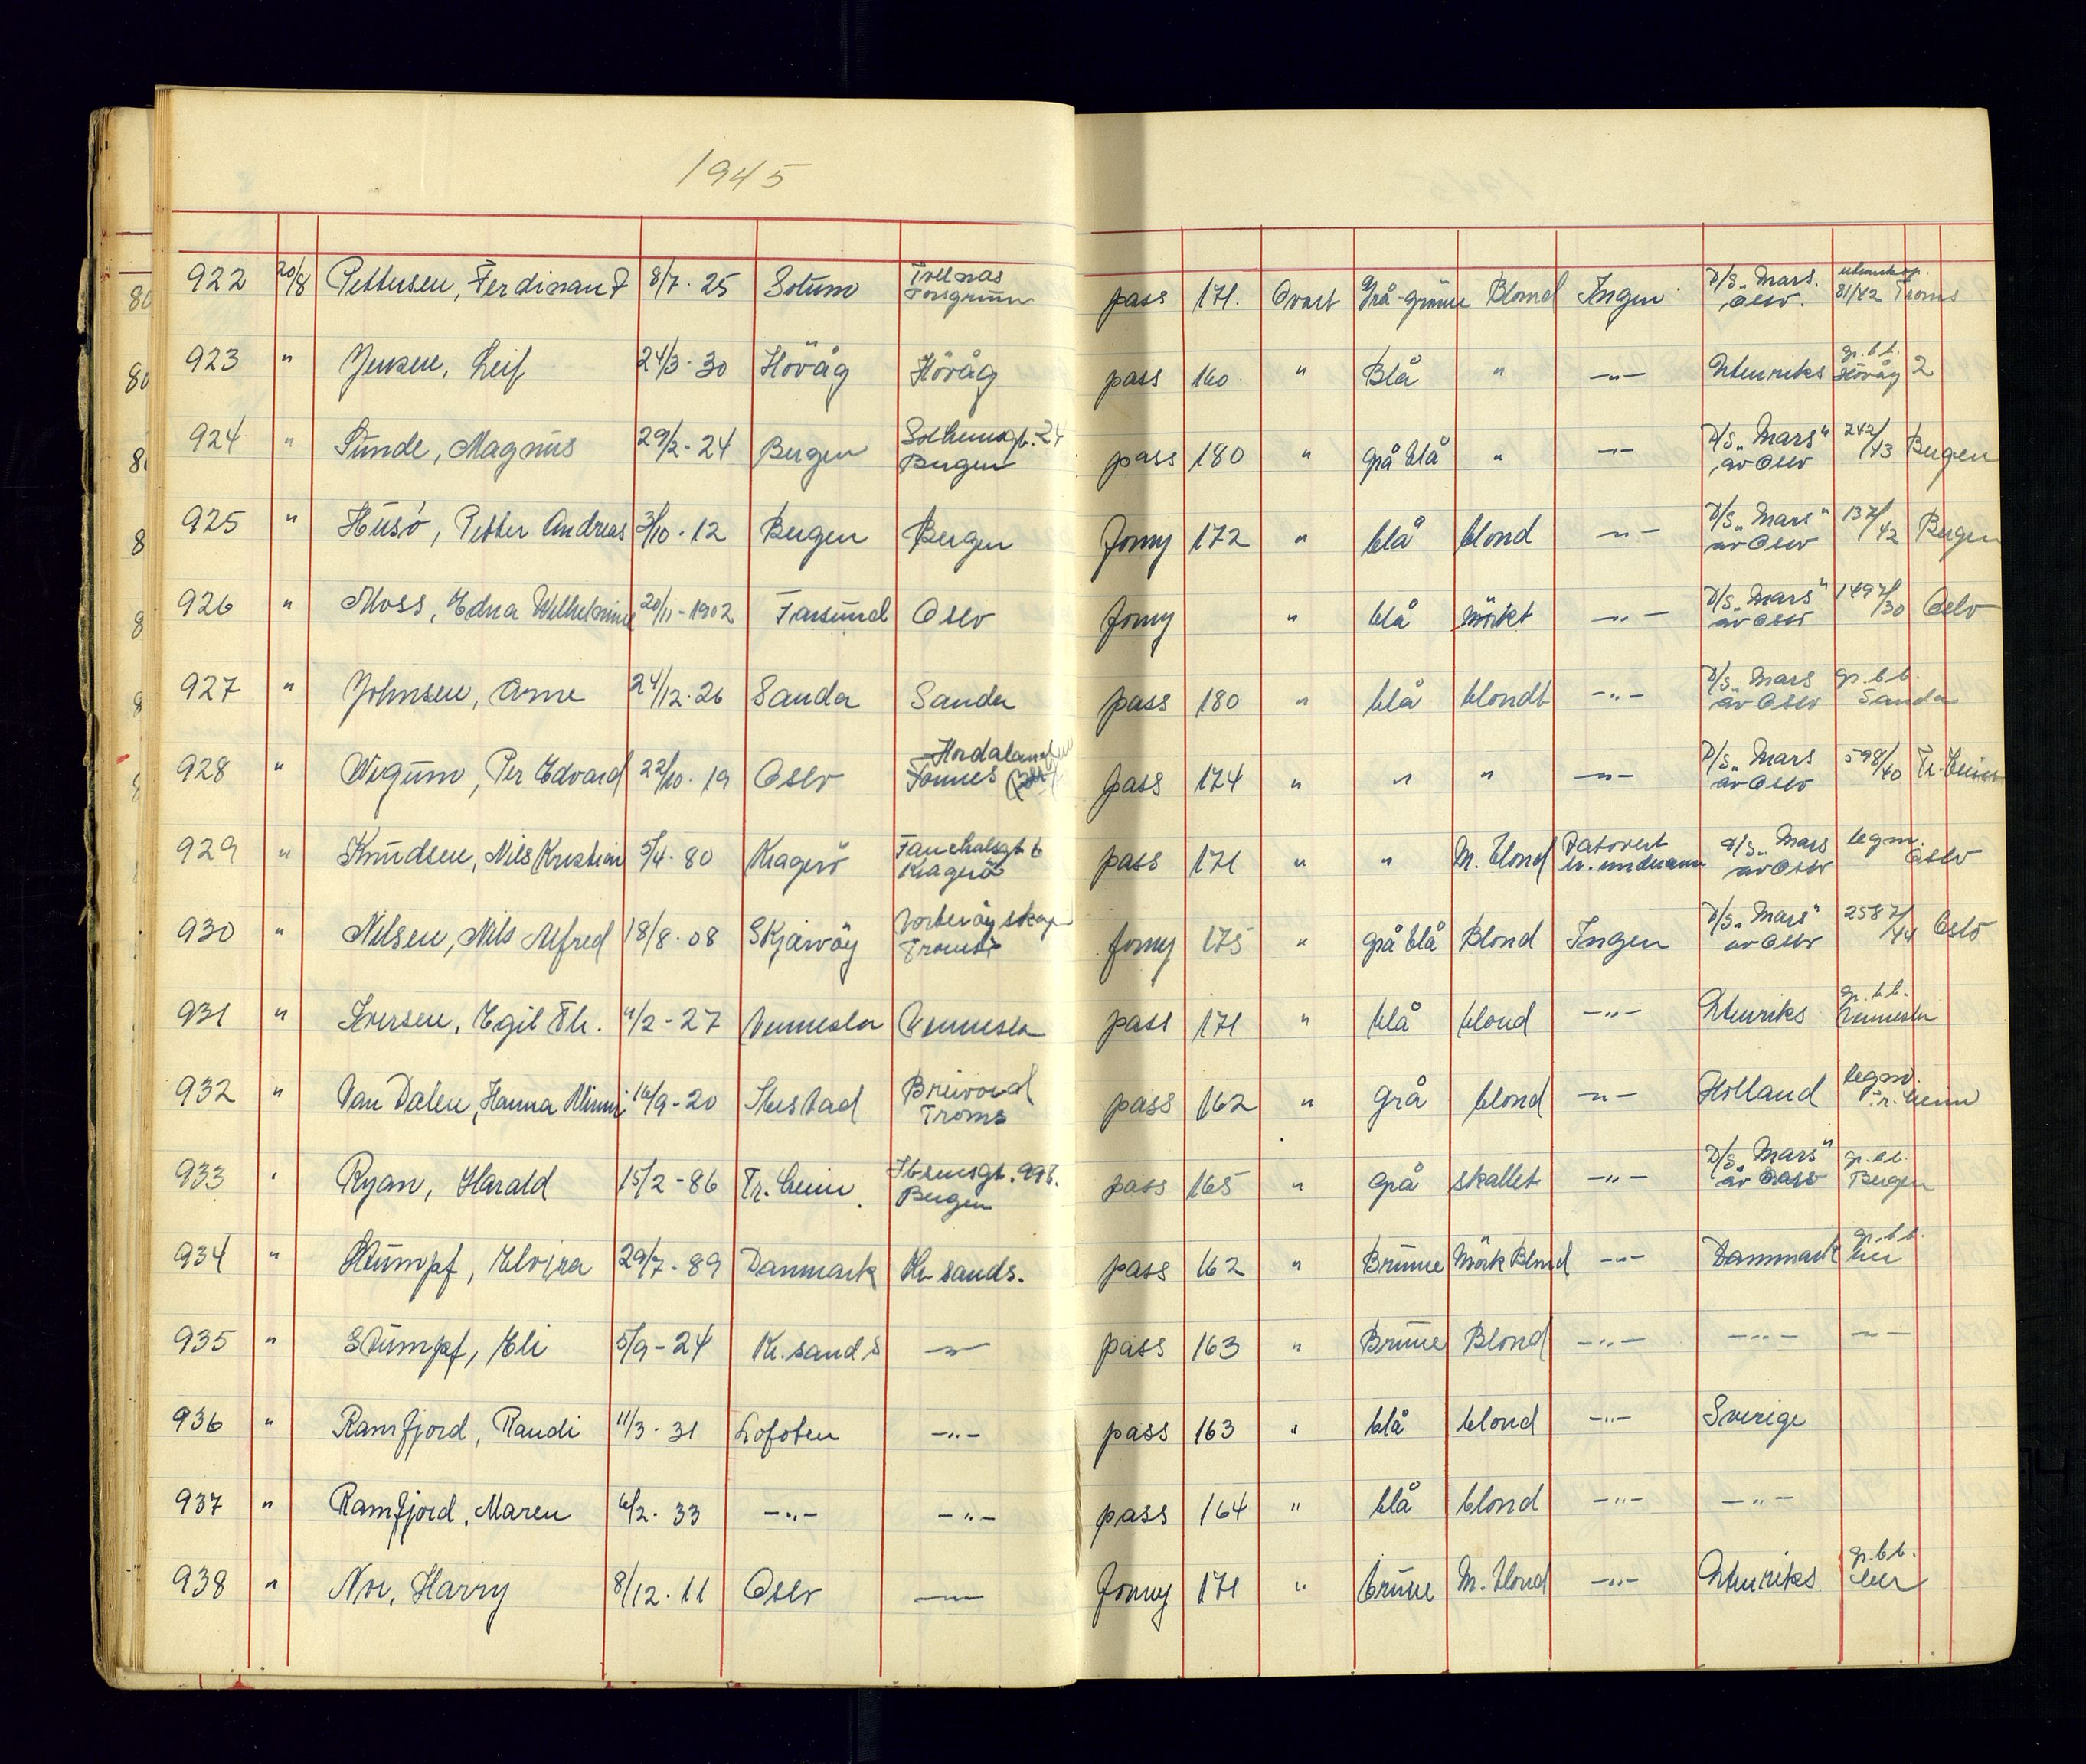 1945
922 20/8 Pettersen, Ferdinand 8/7. 25 Solum Porsgrunn pass 171. Ovalt Grå-grønne Blond Ingen D/S „Mars. Oslo. 81/42 Troms
923 " Jensen, Leif 24/3. 30 Høvåg Høvåg pass 160 " Blå " —"— Utenriks gr.b.b. Høvåg 2
924 " Sunde, Magnus 29/2-24 Bergen Solheimsgt. 24 Bergen pass 180 " grå blå " —"— D/S „Mars" av Oslo 242/43 Bergen
925 " Husö, Petter Andreas 3/10. 12 Bergen Bergen forny 172 " blå blond —"— D/S „Mars" av Oslo 137/42 Bergen
926 " Moss, Edna Wilhelmine 20/11-1902 Farsund Oslo forny " blå mörkt —"— D/S „Mars" av Oslo 1497/30 Oslo
927 " Johnsen, Arne 24/12. 26 Sanda Sanda pass 180 " blå blondt —"— D/S „Mars av Oslo gr.b.b. Sanda
928 " Wigum, Per Edvard 22/10. 19 Oslo Hordaland pass 174 " " " —"— D/S „Mars av Oslo 598/40 Tr.heim
929 " Knudsen, Nils Kristian 5/4. 80 Kragerö Kragerö pass 171 " " M. blond Tatovert h. underarm D/S „Mars av Oslo legm. Oslo
930 " Nilsen, Nils Alfred 18/8. 08 Skjærvöy Tromsö forny 175 " grå blå Blond Ingen D/S „Mars" av Oslo 2587/44 Oslo
931 " Iversen, Egil Th. 4/2-27 Vennesla Vennesla pass 171 " blå blond —"— Utenriks gr.b.b. Vennesla
932 " Van Dalen, Hanna Minni 16/9-20 Ibestad Breivoll Troms pass 162 " grå blond —"— Holland legm. Tr.heim
933 " Ryan, Harald 15/2-86 Tr.heim. Ibsensgt. 99b. Bergen pass 165 " grå skallet —"— D/S „Mars" av Oslo gr.bb. Bergen
934 " Stumpf, Elvira 29/7-89 Danmark Kr.sands. pass 162 " Brune Mörk Blond —"— Danmark gr.b.b. her
935 " Stumpf, Eli 5/9-24 Kr.sand S —"— pass 163 " Brune Blond —"— —"— —"—
936 " Ramfjord, Randi 11/3. 31 Lofoten —"— pass 163 " blå blond —"— Sverige
937 " Ramfjord, Maren 6/2. 33 —"— —"— pass 164 " blå blond —"— —"—
938 " Noe, Harry 8/12. 11 Oslo —"— forny 171 " brune M. blond —"— Utenriks gr.b.b. her